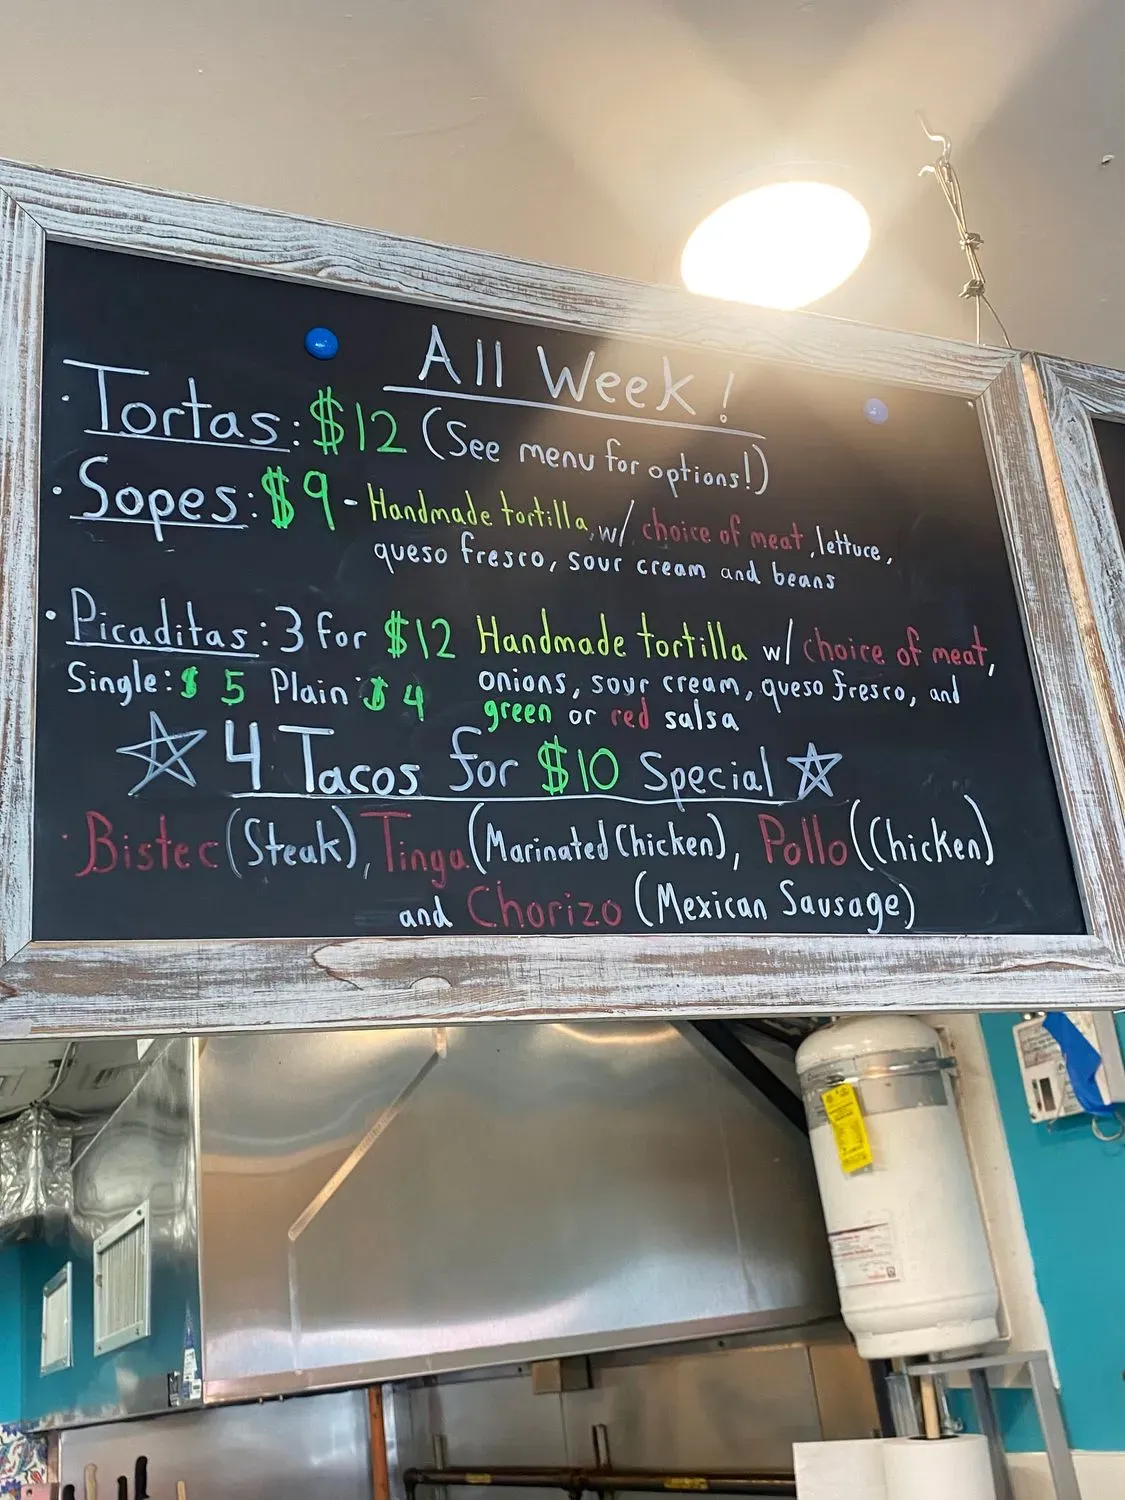 All Week!
· Tortas: $12 (See menu for options!)
· Sopes: $9 - Handmade tortilla, w/ choice of meat, lettuce,
queso fresco, sour cream and beans
· Picaditas: 3 for $12 Handmade tortilla w/ choice of meat,
Single: $5 Plain: $4 onions, sour cream, queso fresco, and
green or red salsa
☆ 4 Tacos for $10 Special ☆
· Bistec (Steak), Tinga (Marinated Chicken), Pollo (Chicken)
and Chorizo (Mexican Sausage)